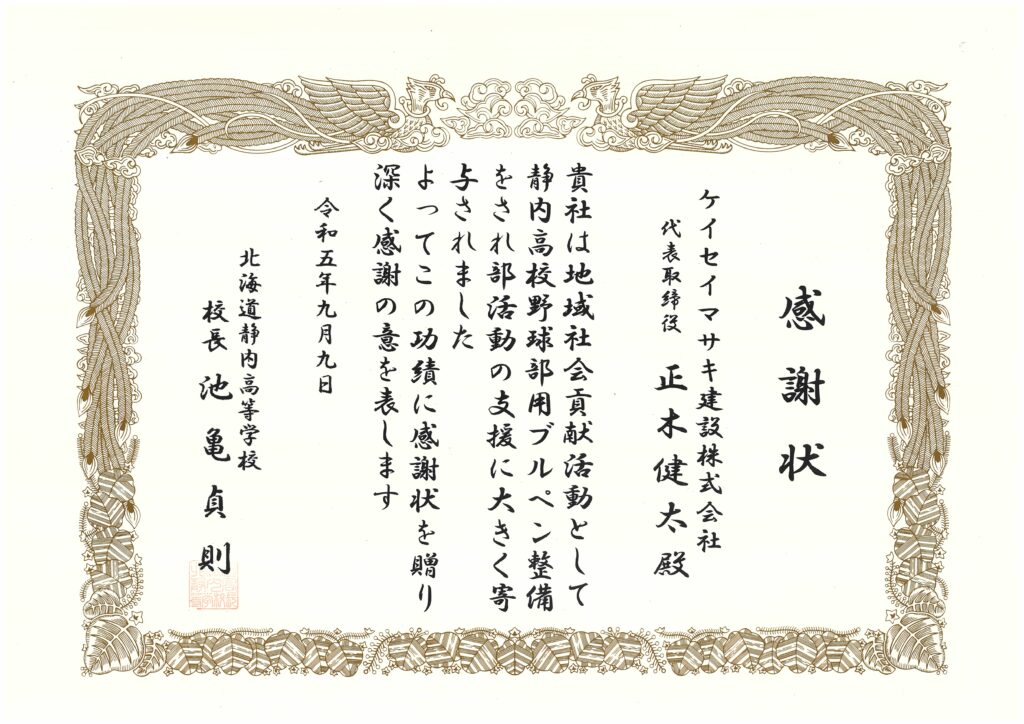 感謝状
ケイセイマサキ建設株式会社
代表取締役 正木健太殿
貴社は地域社会貢献活動として
静内高校野球部用ブルペン整備
をされ部活動の支援に大きく寄
与されました
よってこの功績に感謝状を贈り
深く感謝の意を表します
令和五年九月九日
北海道静内高等学校
校長 池亀貞則